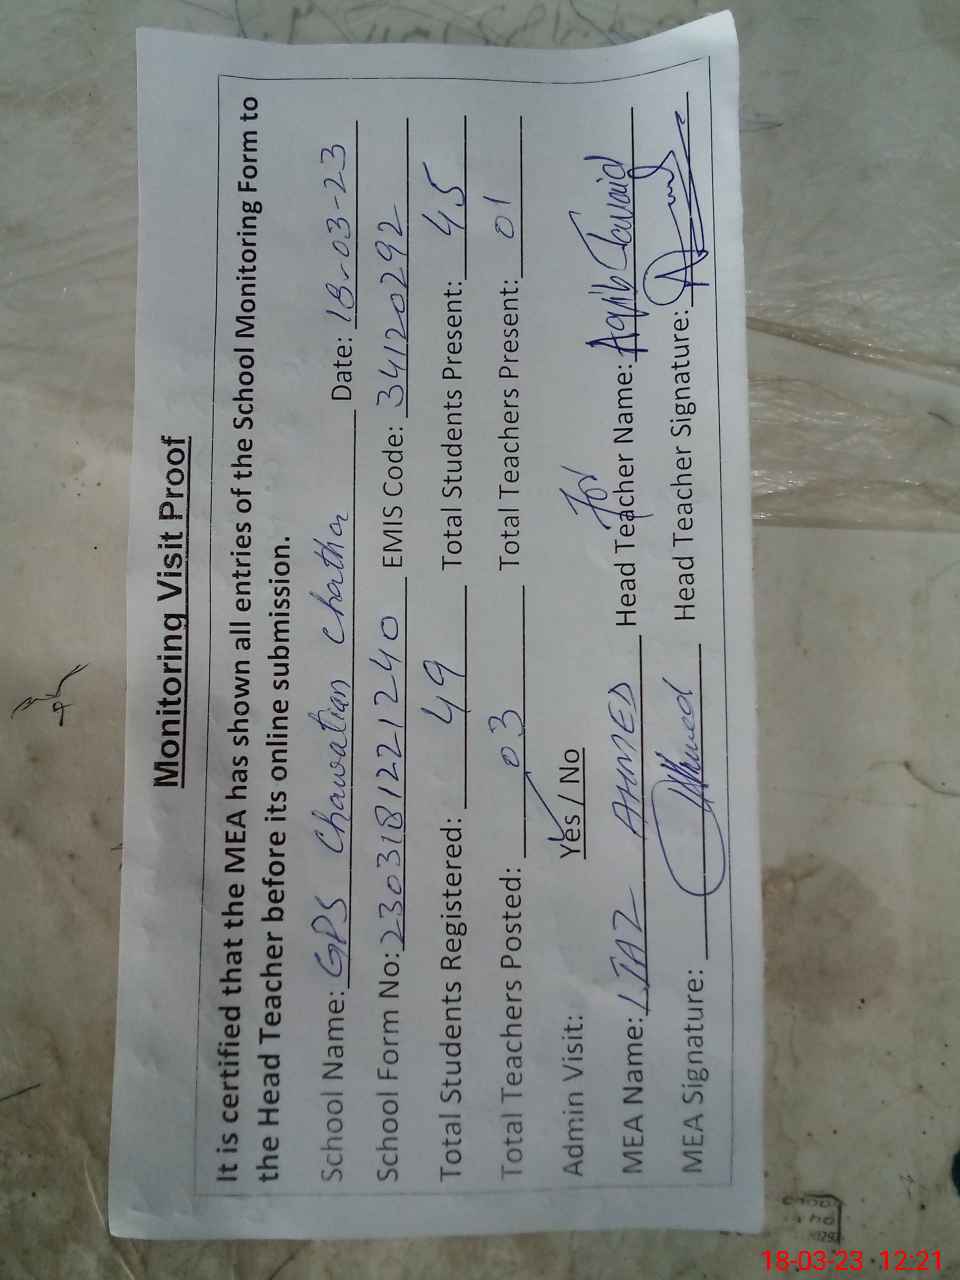 Monitoring Visit Proof
It is certified that the MEA has shown all entries of the School Monitoring Form to
the Head Teacher before its online submission.
School Name: GPS Chawatian Chatha Date: 18-03-23
School Form No: 2303181221240 EMIS Code: 34120292
Total Students Registered: 49 Total Students Present: 45
Total Teachers Posted: 03 Total Teachers Present: 01
Admin Visit: Yes / No
For
MEA Name: IJAZ AHMED Head Teacher Name: Aqib Javaid
MEA Signature: Ahmed Head Teacher Signature:
18-03-23 12:21